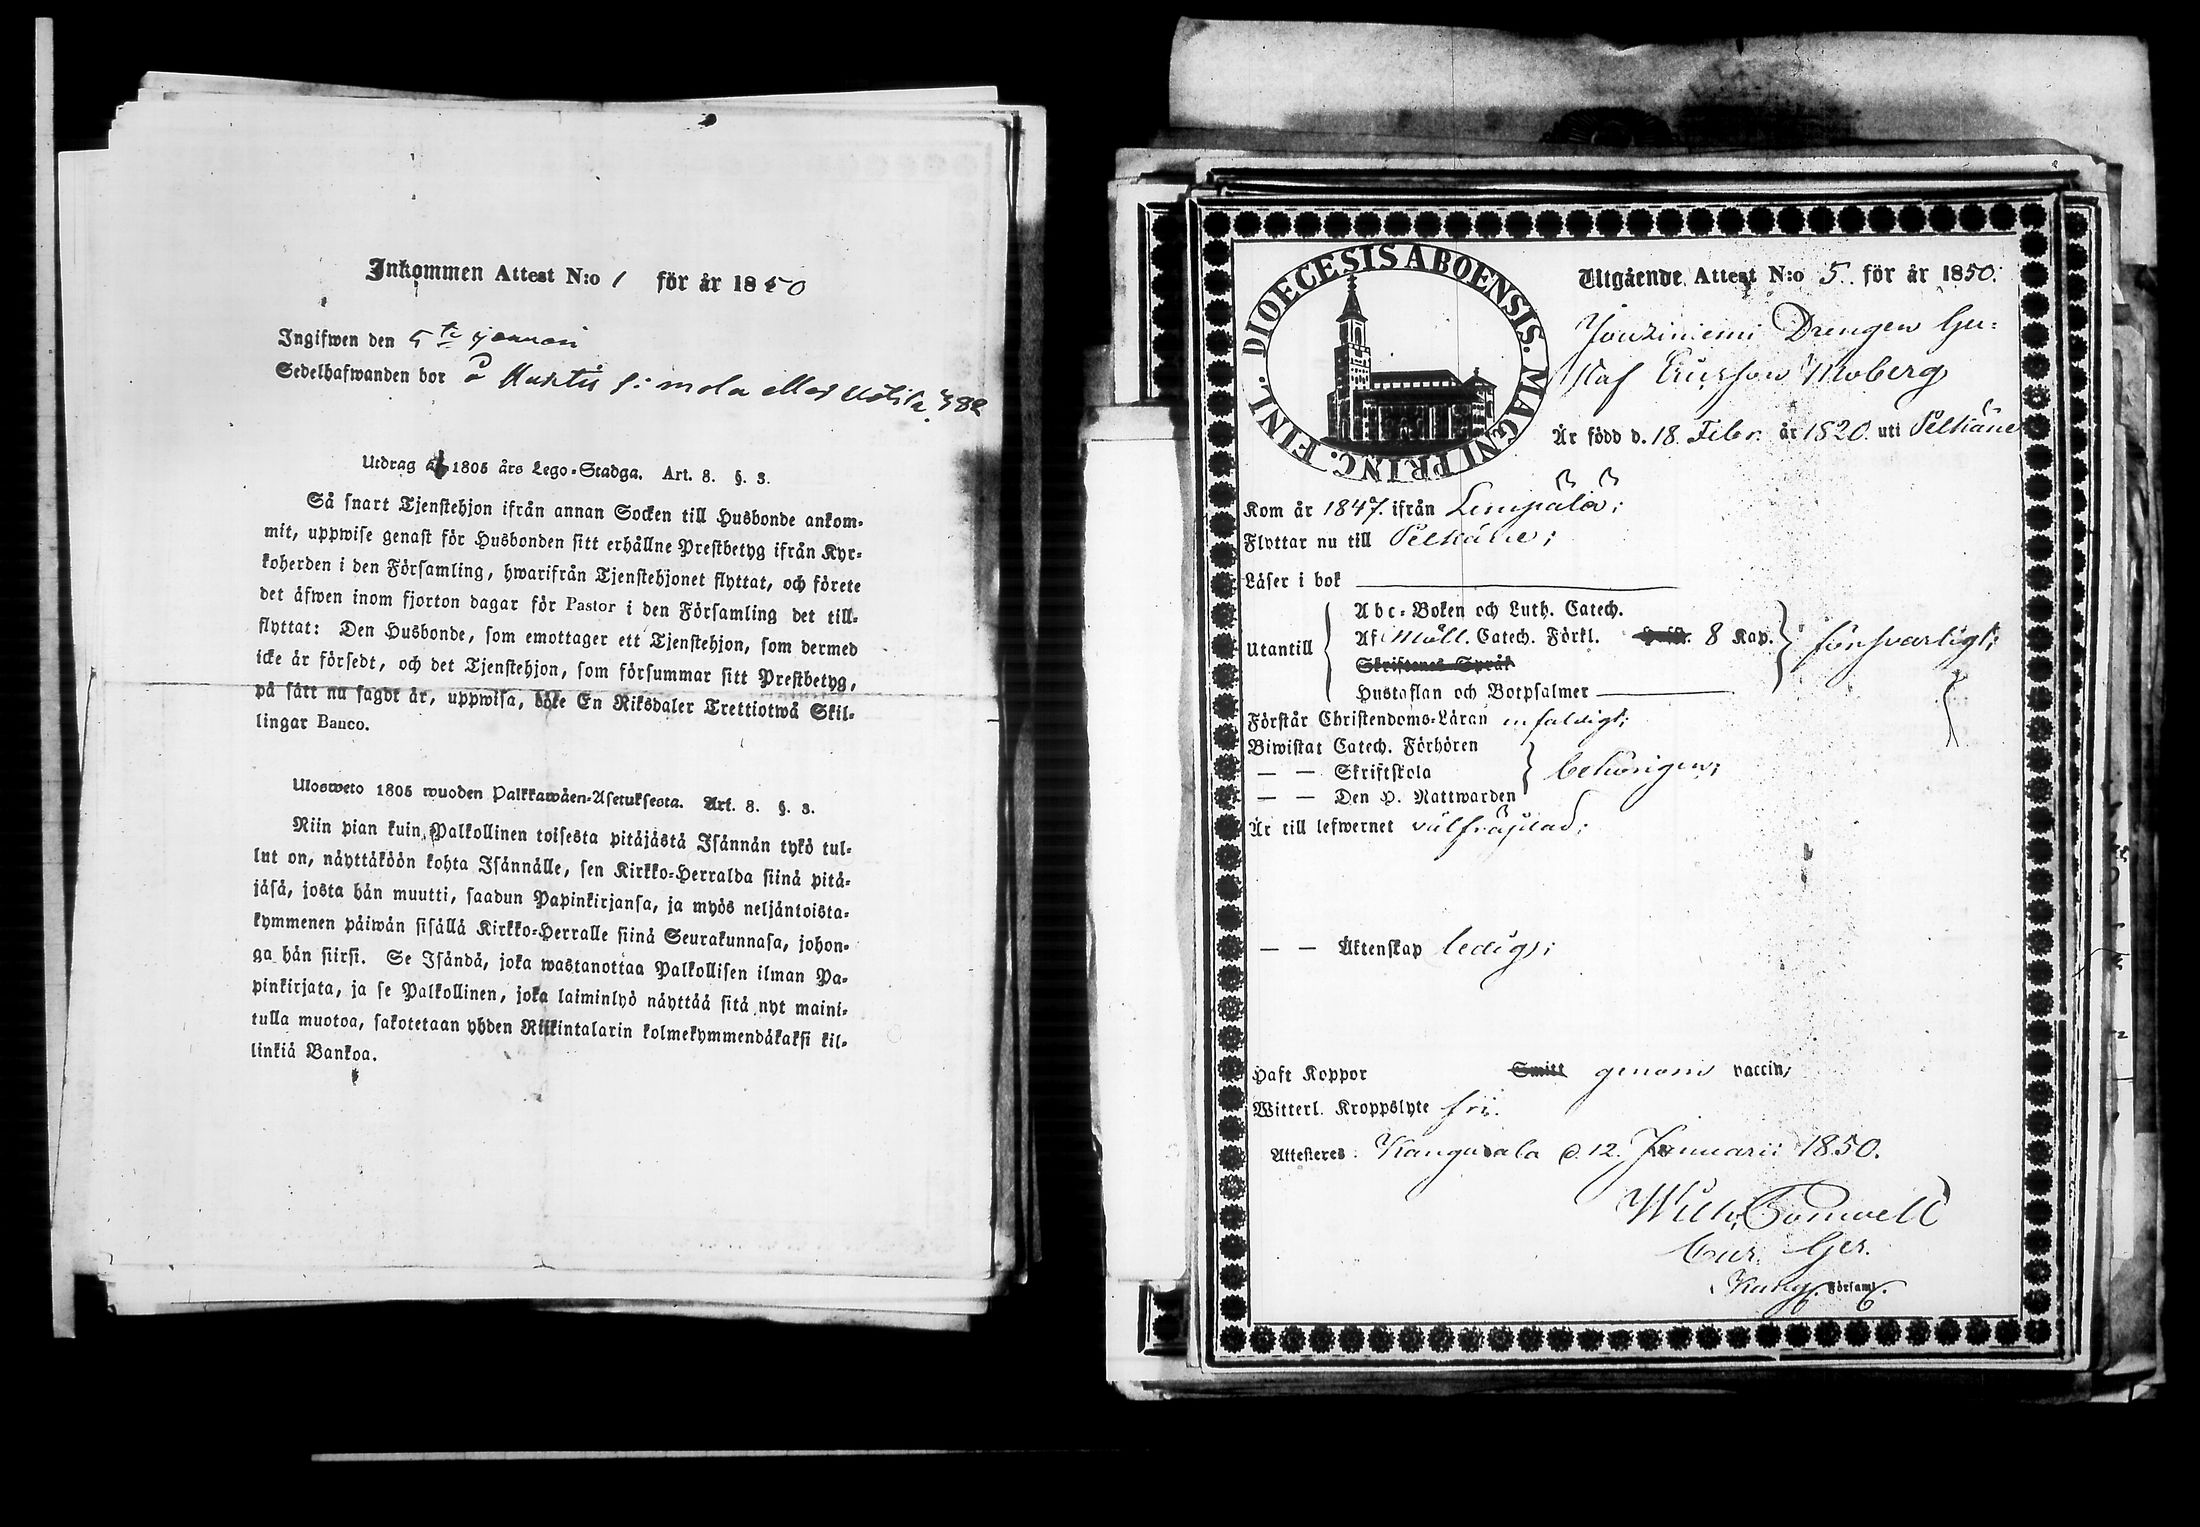 Inkommen Attest N:o 1 för år 1850
Ingifwen den 5te januari
Sedelhafwanden bor å
Utdrag af 1805 års Lego-Stadga. Art. 8. §. 3.
Så snart Tjenstehjon ifrån annan Socken till Husbonde ankom-
mit, uppwise genast för Husbonden sitt erhållne Prestbetyg ifrån Kyr-
koherden i den Församling, hwarifrån Tjenstehjonet flyttat, och förete
det äfwen inom fjorton dagar för Pastor i den Församling det till-
flyttat: Den Husbonde, som emottager ett Tjenstehjon, som dermed
icke är försedt, och det Tjenstehjon, som försummar sitt Prestbetyg,
på sätt nu sagdt är, uppwisa, böte En Riksdaler Trettiotwå Skil-
lingar Banco.
Ulosweto 1805 wuoden Palkkawäen-Asetuksesta. Art. 8. §. 3.
Niin pian kuin Palkollinen toisesta pitäjästä Isännän tykö tul-
lut on, näyttäköön kohta Isännälle, sen Kirkko-Herralda siinä pitä-
jäsä, josta hän muutti, saadun Papinkirjansa, ja myös neljäntoista-
kymmenen päiwän sisällä Kirkko-Herralle siinä Seurakunnasa, johon-
ga hän siirsi. Se Isändä, joka wastanottaa Palkollisen ilman Pa-
pinkirjata, ja se Palkollinen, joka laiminlyö näyttää sitä nyt maini-
tulla muotoa, sakotetaan yhden Riikintalarin kolmekymmendäkaksi kil-
linkiä Bankoa.
DIOECESIS ABOENSIS. MAGNI PRINC. FINL.
Utgående Attest N:o 5. för år 1850.
Drengen Gu-
staf Ericsson Moberg
Är född d. 18 Febr. år 1820. uti Pelkäne
Kom år 1847. ifrån Lempälä;
Flyttar nu till Pelkäne;
Läser i bok
Utantill
Abc-Boken och Luth. Catech.
Af Möll. Catech. Förkl. Hufst. 8 Kap. försvarligt;
Skriftenes Språk
Hustaflan och Botpsalmer
Förstår Christendoms-Läran enfaldigt;
Biwistat Catech. Förhören
— — Skriftskola behörigen;
— — Den H. Nattwarden
Är till lefwernet välfräjdad;
— — Äktenskap ledig;
Haft Koppor Smitt genom vaccin;
Witterl. Kroppslyte fri.
Attesteres: Kangasala d. 12. Januarii 1850.
Wilh.
Cur. Ger.
Kang. Församl.